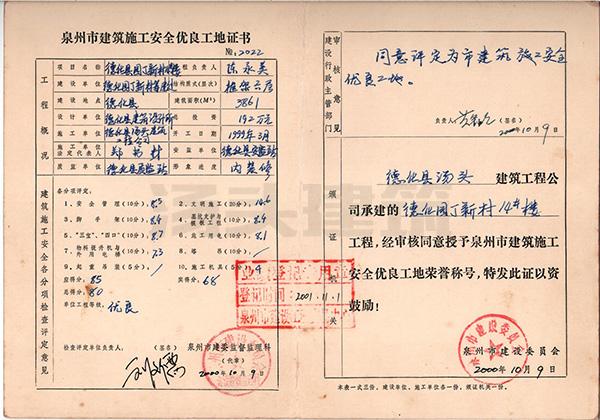 泉州市建筑施工安全优良工地证书
№:2022
工程概况
项目名称 德化县园丁新村14#楼 工程负责人 陈永美
建设单位 德化县园丁新村 结构类型(层次)
建设地点 德化县 建筑面积(M²) 3861
设计单位 德化县建筑设计所 总投资 192万元
施工单位 德化县汤头建筑工程公司 开工日期 1999年3月
法定代表人 安监单位 德化县安监站
质监单位 德化县质监站 形象进度 内装修
建筑施工安全各分项检查评定意见
各分项评定:
1、安全管理(10分) 8.3 2、文明施工(20分) 14.6
3、脚手架(10分) 8.4 4、基坑支护与模板工程(10分) 8.4
5、“三宝”、“四口”(10分) 8.7 6、施工用电(10分) 8.1
7、物料提升机与外用电梯(10分) 7.3 8、塔吊(10分)
9、起重吊装(5分) 10、施工机具(5分) 4
应得分: 85 实得分: 68
总得分: 80
单位工程等级: 优良
检查评定单位负责人: (签名) 泉州市建委监督监理科
(代章)
2000年10月9日
建设行政主管部门
审核意见
同意评定为市建筑施工安全
优良工地。
负责人: (签名)
2000年10月9日
颁证机关
德化县汤头 建筑工程公
司承建的 德化园丁新村14#楼
工程,经审核同意授予泉州市建筑施工
安全优良工地荣誉称号,特发此证以资
鼓励!
泉州市建设委员会
2000年10月9日
登记时间:2001.11.1
本表一式三份,建设单位、施工单位各一份,颁证机关一份。
汤头建筑